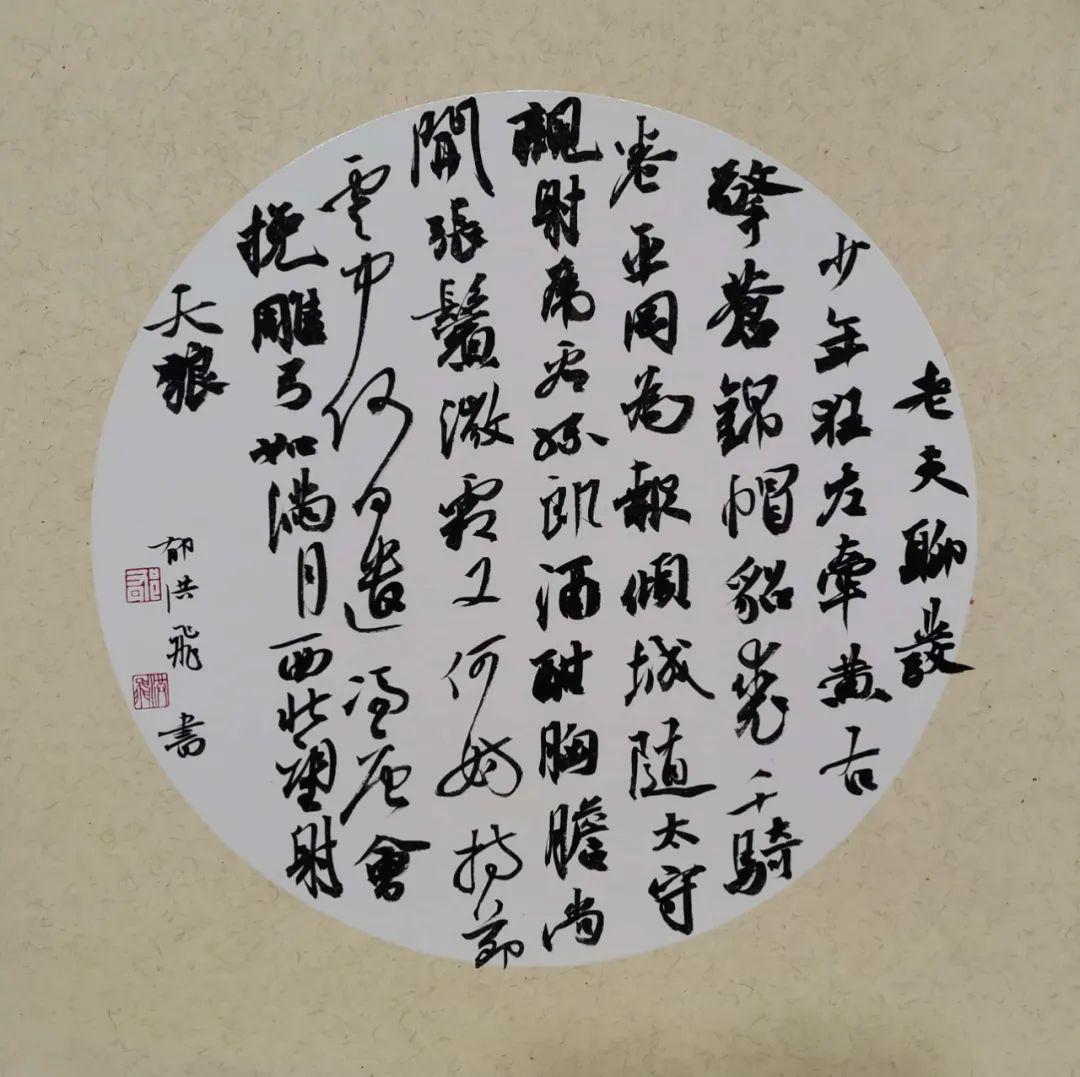 老夫聊發
少年狂左牽黃右
擎蒼錦帽貂裘千騎
卷平岡為報傾城隨太守
親射虎看孫郎酒酣胸膽尚
開張鬢微霜又何妨持節
雲中何日遣馮唐會
挽雕弓如滿月西北望射
天狼
郁洪飛書